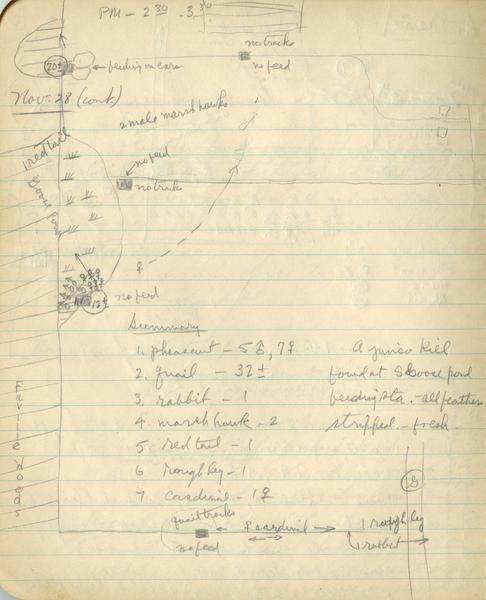 PM - 2 30 - 3 30
no tracks
no feed
20±
← feeding on corn
Nov. 28 (cont.)
2 male marsh hawks
1 red tail
Goose Pond
no feed
no tracks
♀
12±
no feed
Summary
1. pheasant - 5♂, 7♀
2. quail - 32±
3. rabbit - 1
4 marsh hawk - 2
5 red tail - 1
6 rough leg - 1
7. cardinal - 1♀
A junco kill
found at S Goose pond
feeding sta. - all feathers
stripped - fresh
Faville Woods
quail tracks
no feed
♀ cardinal
1 rough leg
rabbit